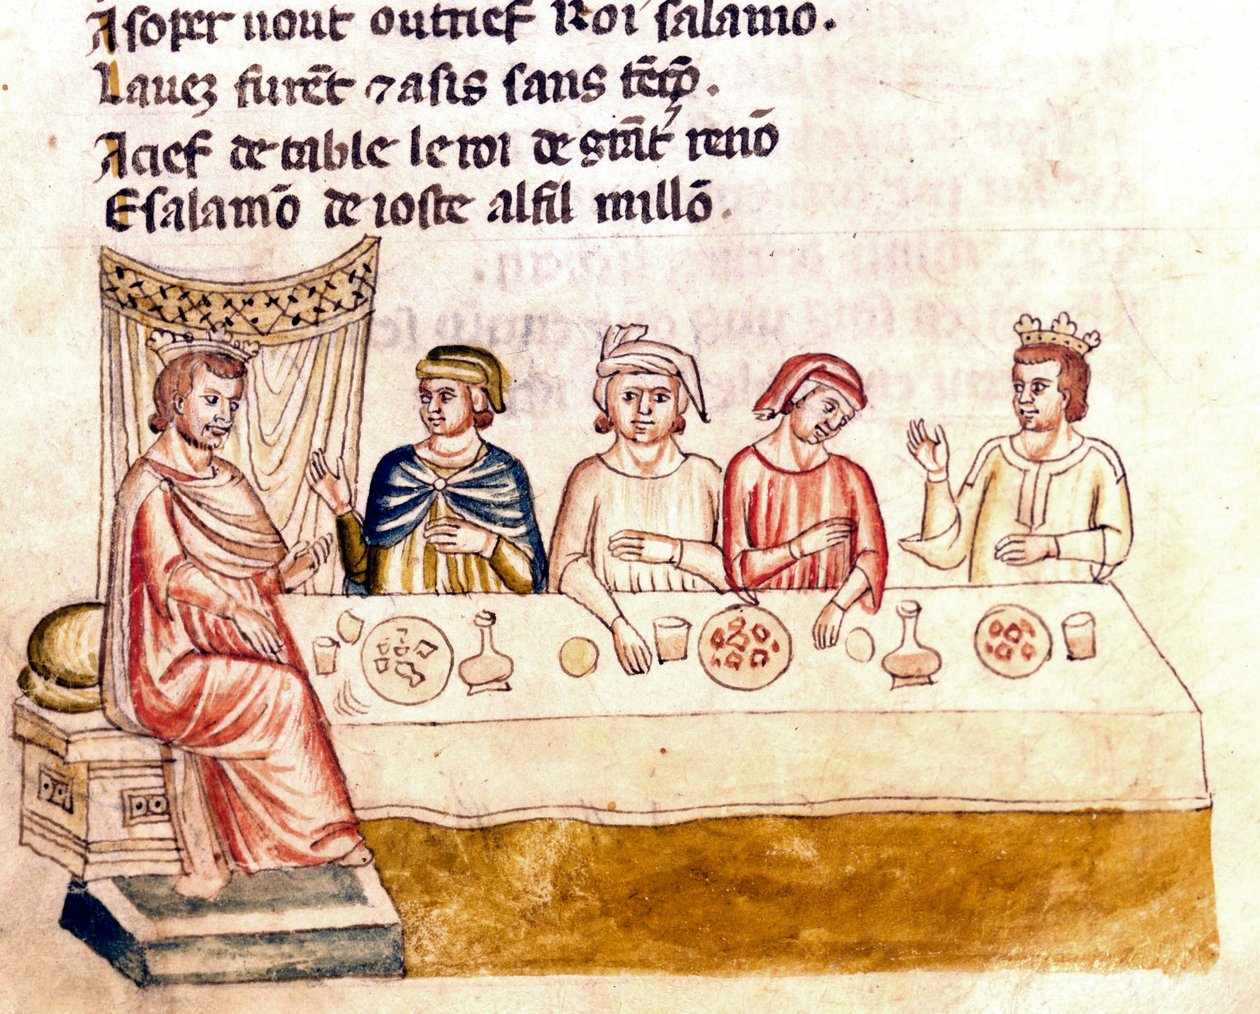 Asoper uout outrief Roi salamo.
Lauez furēt ⁊ asis sans
Acief de table le roi de grāt renō
E salamō de ioste alfil millō.